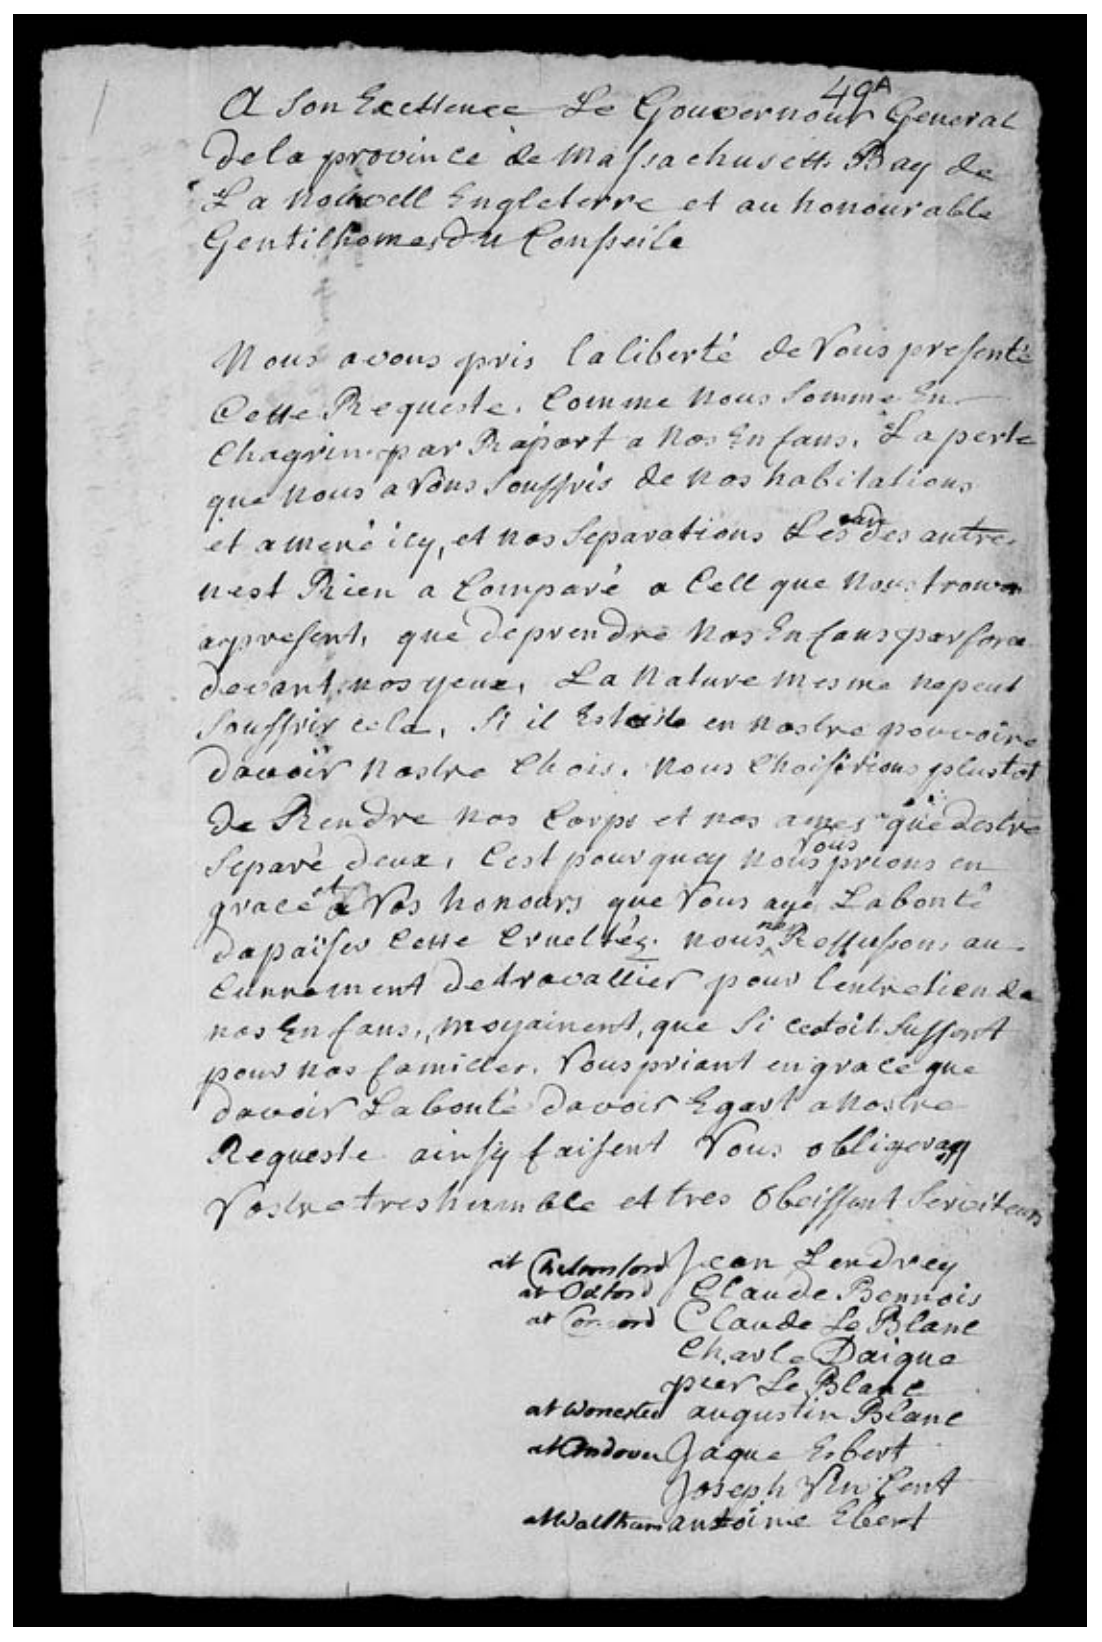 49A
A Son Excellence Le Gouvernour General
de la province de Massachusett Bay de
La Nouvell Engleterre et au honourable
Gentilhomes du Conseile
Nous avous pris la liberté de Vous presenté
Cette Requeste, Comme Nous Somme En
Chagrin par Raport a Nos Enfans. La perte
que nous avons souffris de nos habitations
et amené icy, et nos Separations Les un des autres
nest Rien a Comparé a Cell que Nous trouvon
apresent, que de prendre Nos Enfans par force
devant nos yeux, La Nature mesme ne peut
Souffrir cela, Si il Estoit en nostre pouvoire
davoir Nostre Chois. Nous Choisirions plustot
de Rendre nos Corps et nos ames que destre
Separé deux, Cest pourquoy Nous Vous prions en
grace et a Vos honours que Vous ayé La bonté
dapaiser Cette Cruelté. nous nen Reffusons au-
cunnement de travallier pour lentretien de
nos Enfans, moyainent, que Si cetoit Suffent
pour nos familles. Vous priant en grace que
davoir La bonté davoir Egart a Nostre
Requeste ainsy faisent Vous obligeray
Vostre tres humble et tres Obeissant Serviteurs
at Chelmsford Jean Lendrey
at Oxford Claude Bennois
at Concord Claude Le Blanc
Charle Daigue
pier Le Blanc
at Worcester augustin Blanc
at Andover Jaque Esbert
Joseph Vincent
at Waltham antoine Ebert